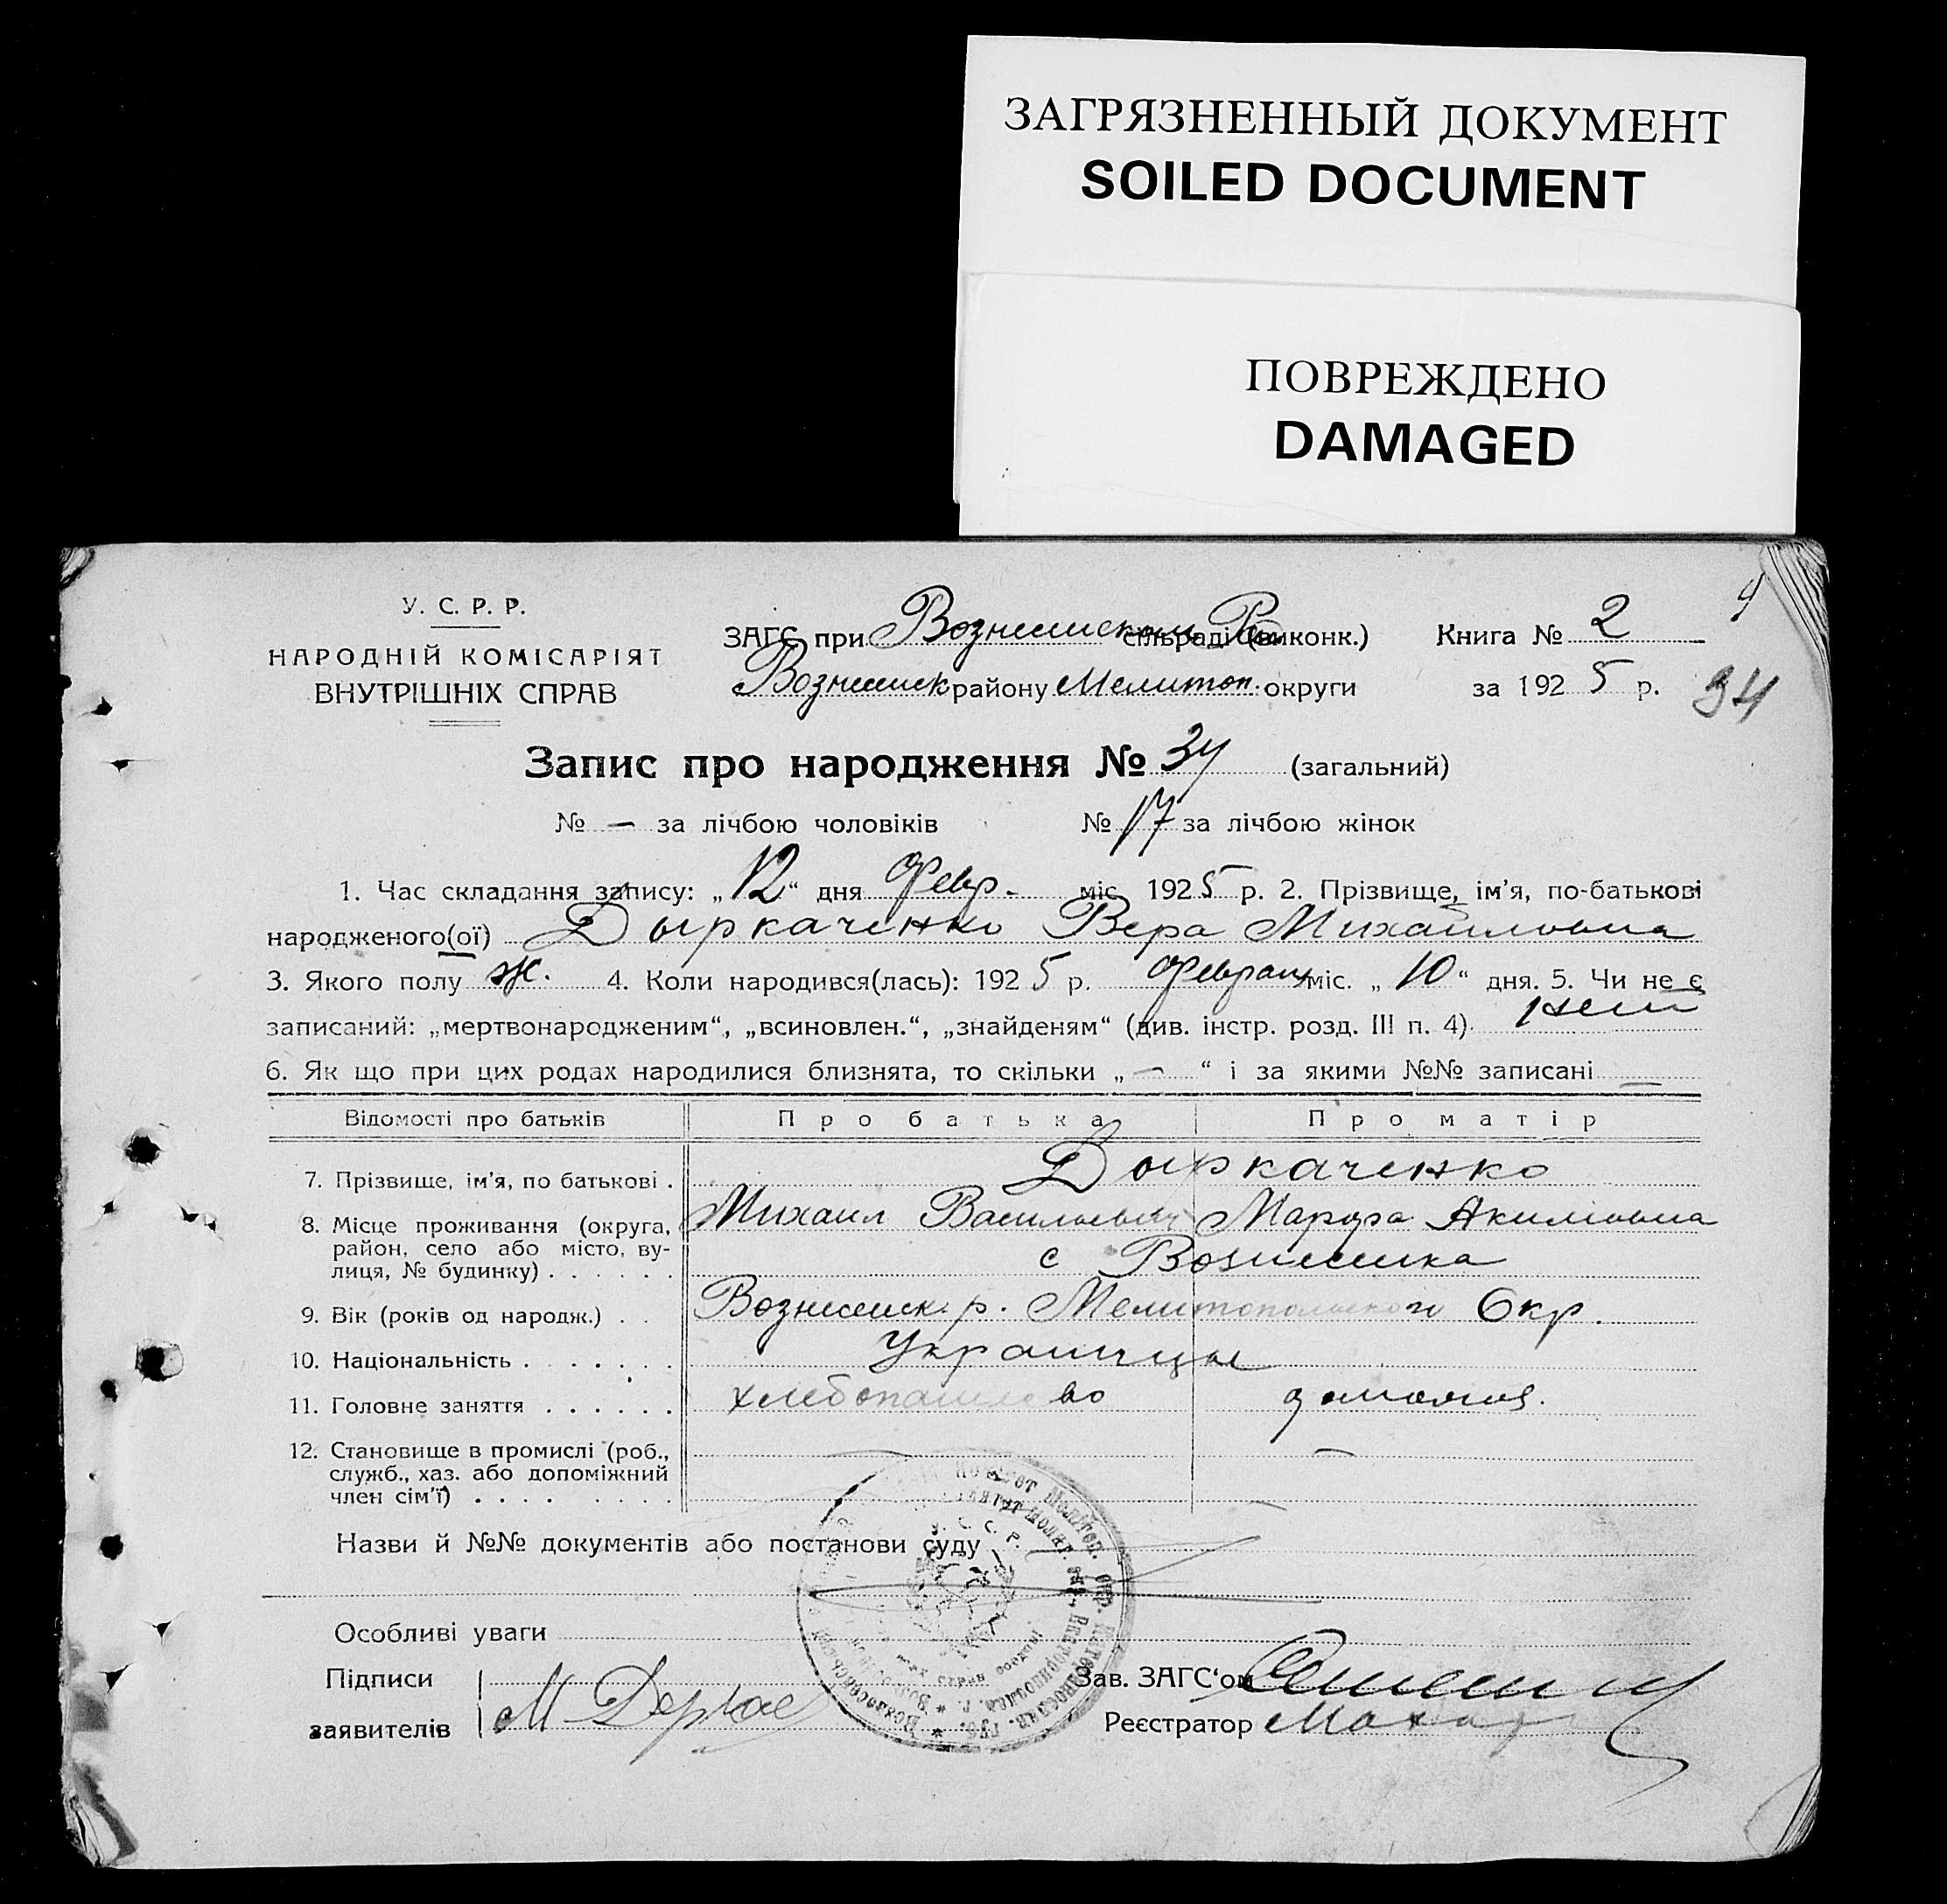 ЗАГРЯЗНЕННЫЙ ДОКУМЕНТ
SOILED DOCUMENT
ПОВРЕЖДЕНО
DAMAGED
У. С. Р. Р.
НАРОДНІЙ КОМІСАРІЯТ
ВНУТРІШНІХ СПРАВ
ЗАГС при Вознесенском сільраді (виконк.)
Вознесенск району Мелитоп. округи
Книга № 2
за 1925 р.
34
Запис про народження № 34 (загальний)
№ — за лічбою чоловіків № 17 за лічбою жінок
1. Час складання запису: „12“ дня Февр. міс. 1925 р. 2. Прізвище, ім'я, по-батькові
народженого(ої) Дыркаченко Вера Михайловна
3. Якого полу ж. 4. Коли народився(лась): 1925 р. Февраля міс. „10“ дня. 5. Чи не є
записаний: „мертвонародженим“, „всиновлен.“, „знайденям“ (див. інстр. розд. III п. 4). нет
6. Як що при цих родах народилися близнята, то скільки „—“ і за якими №№ записані —
Відомості про батьків Про батька Про матір
7. Прізвище, ім'я, по батькові . Дыркаченко
8. Місце проживання (округа, Михаил Васильевич Марфа Акимовна
район, село або місто, ву-
лиця, № будинку) . . . . . . с Вознесенка
9. Вік (років од народж.) . . Вознесенск. р. Мелитопольского Окр.
10. Національність . . . . . . Украинцы
11. Головне заняття . . . . . . хлебопашество домохоз.
12. Становище в промислі (роб., — —
служб., хаз. або допоміжний
член сім'ї) . . . . . . . .
Назви й №№ документів або постанови суду
Особливі уваги
Підписи
заявителів М
Зав. ЗАГС'ом
Реєстратор